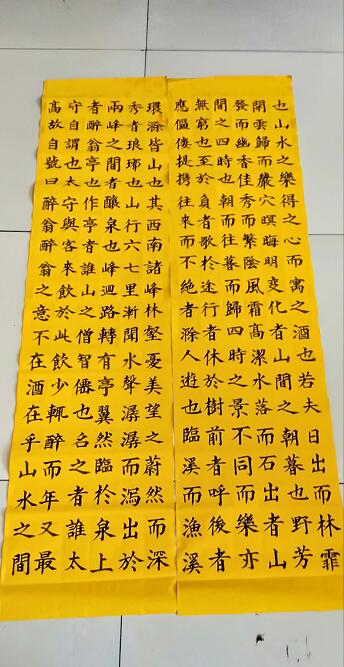 環滁皆山也其西南諸峰林壑憂美望之蔚然而深
秀者琅琊也山行六七里漸聞水聲潺潺而瀉出於
兩峰之間者釀泉也峰迴路轉有亭翼然臨於泉上
者醉翁亭也作亭者誰山之僧智僊也名之者誰太
守自謂也太守與客來飲於此飲少輒醉而年又最
高故自號曰醉翁醉翁之意不在酒在乎山水之間
也山水之樂得之心而寓之酒也若夫日出而林霏
開雲歸而巖穴暝晦明變化者山間之朝暮也野芳
發而幽香佳秀而繁陰風霜高潔水落而石出者山
間之四時也朝而往暮而歸四時之景不同而樂亦
無窮也至於負者歌於途行者休於樹前者呼後者
應傴僂提携往來而不絕者滁人遊也臨溪而漁溪